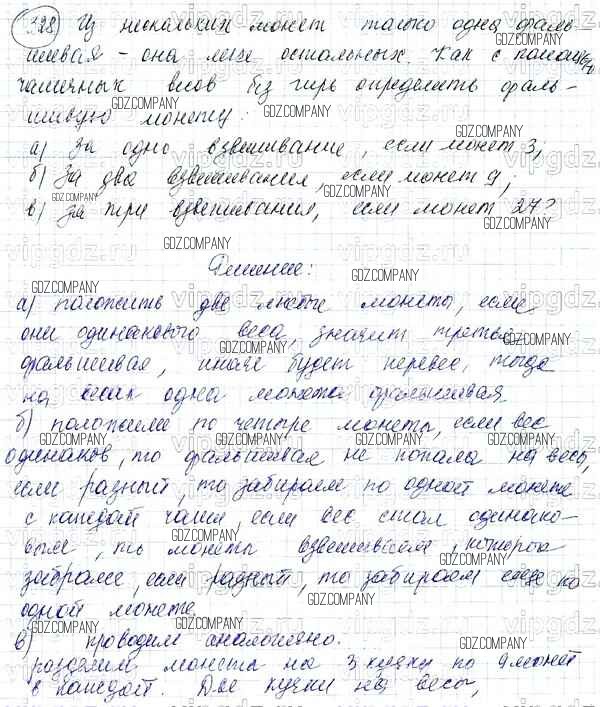 328 Из нескольких монет только одна фаль-
шивая - она легче остальных. Как с помощью
чашечных весов без гирь определить фаль-
шивую монету:
а) За одно взвешивание, если монет 3;
б) За два взвешивания, если монет 9;
в) За три взвешивания, если монет 27?
Решение:
а) положить две любые монеты, если
они одинакового веса, значит третья
фальшивая, иначе будет перевес, тогда
на весах одна монета фальшивая
б) положим по четыре монеты, если вес
одинаков, то фальшивая не попала на весы,
если разный, то забираем по одной монете
с каждой чаши, если вес стал одинако-
вым, то монеты взвешиваем, которые
забрали, если разный, то забираем еще по
одной монете
в) проводим аналогично.
разделим монеты на 3 кучки по 9 монет
в каждой. Две кучки на весы,
GDZ.COMPANY
vipgdz.ru